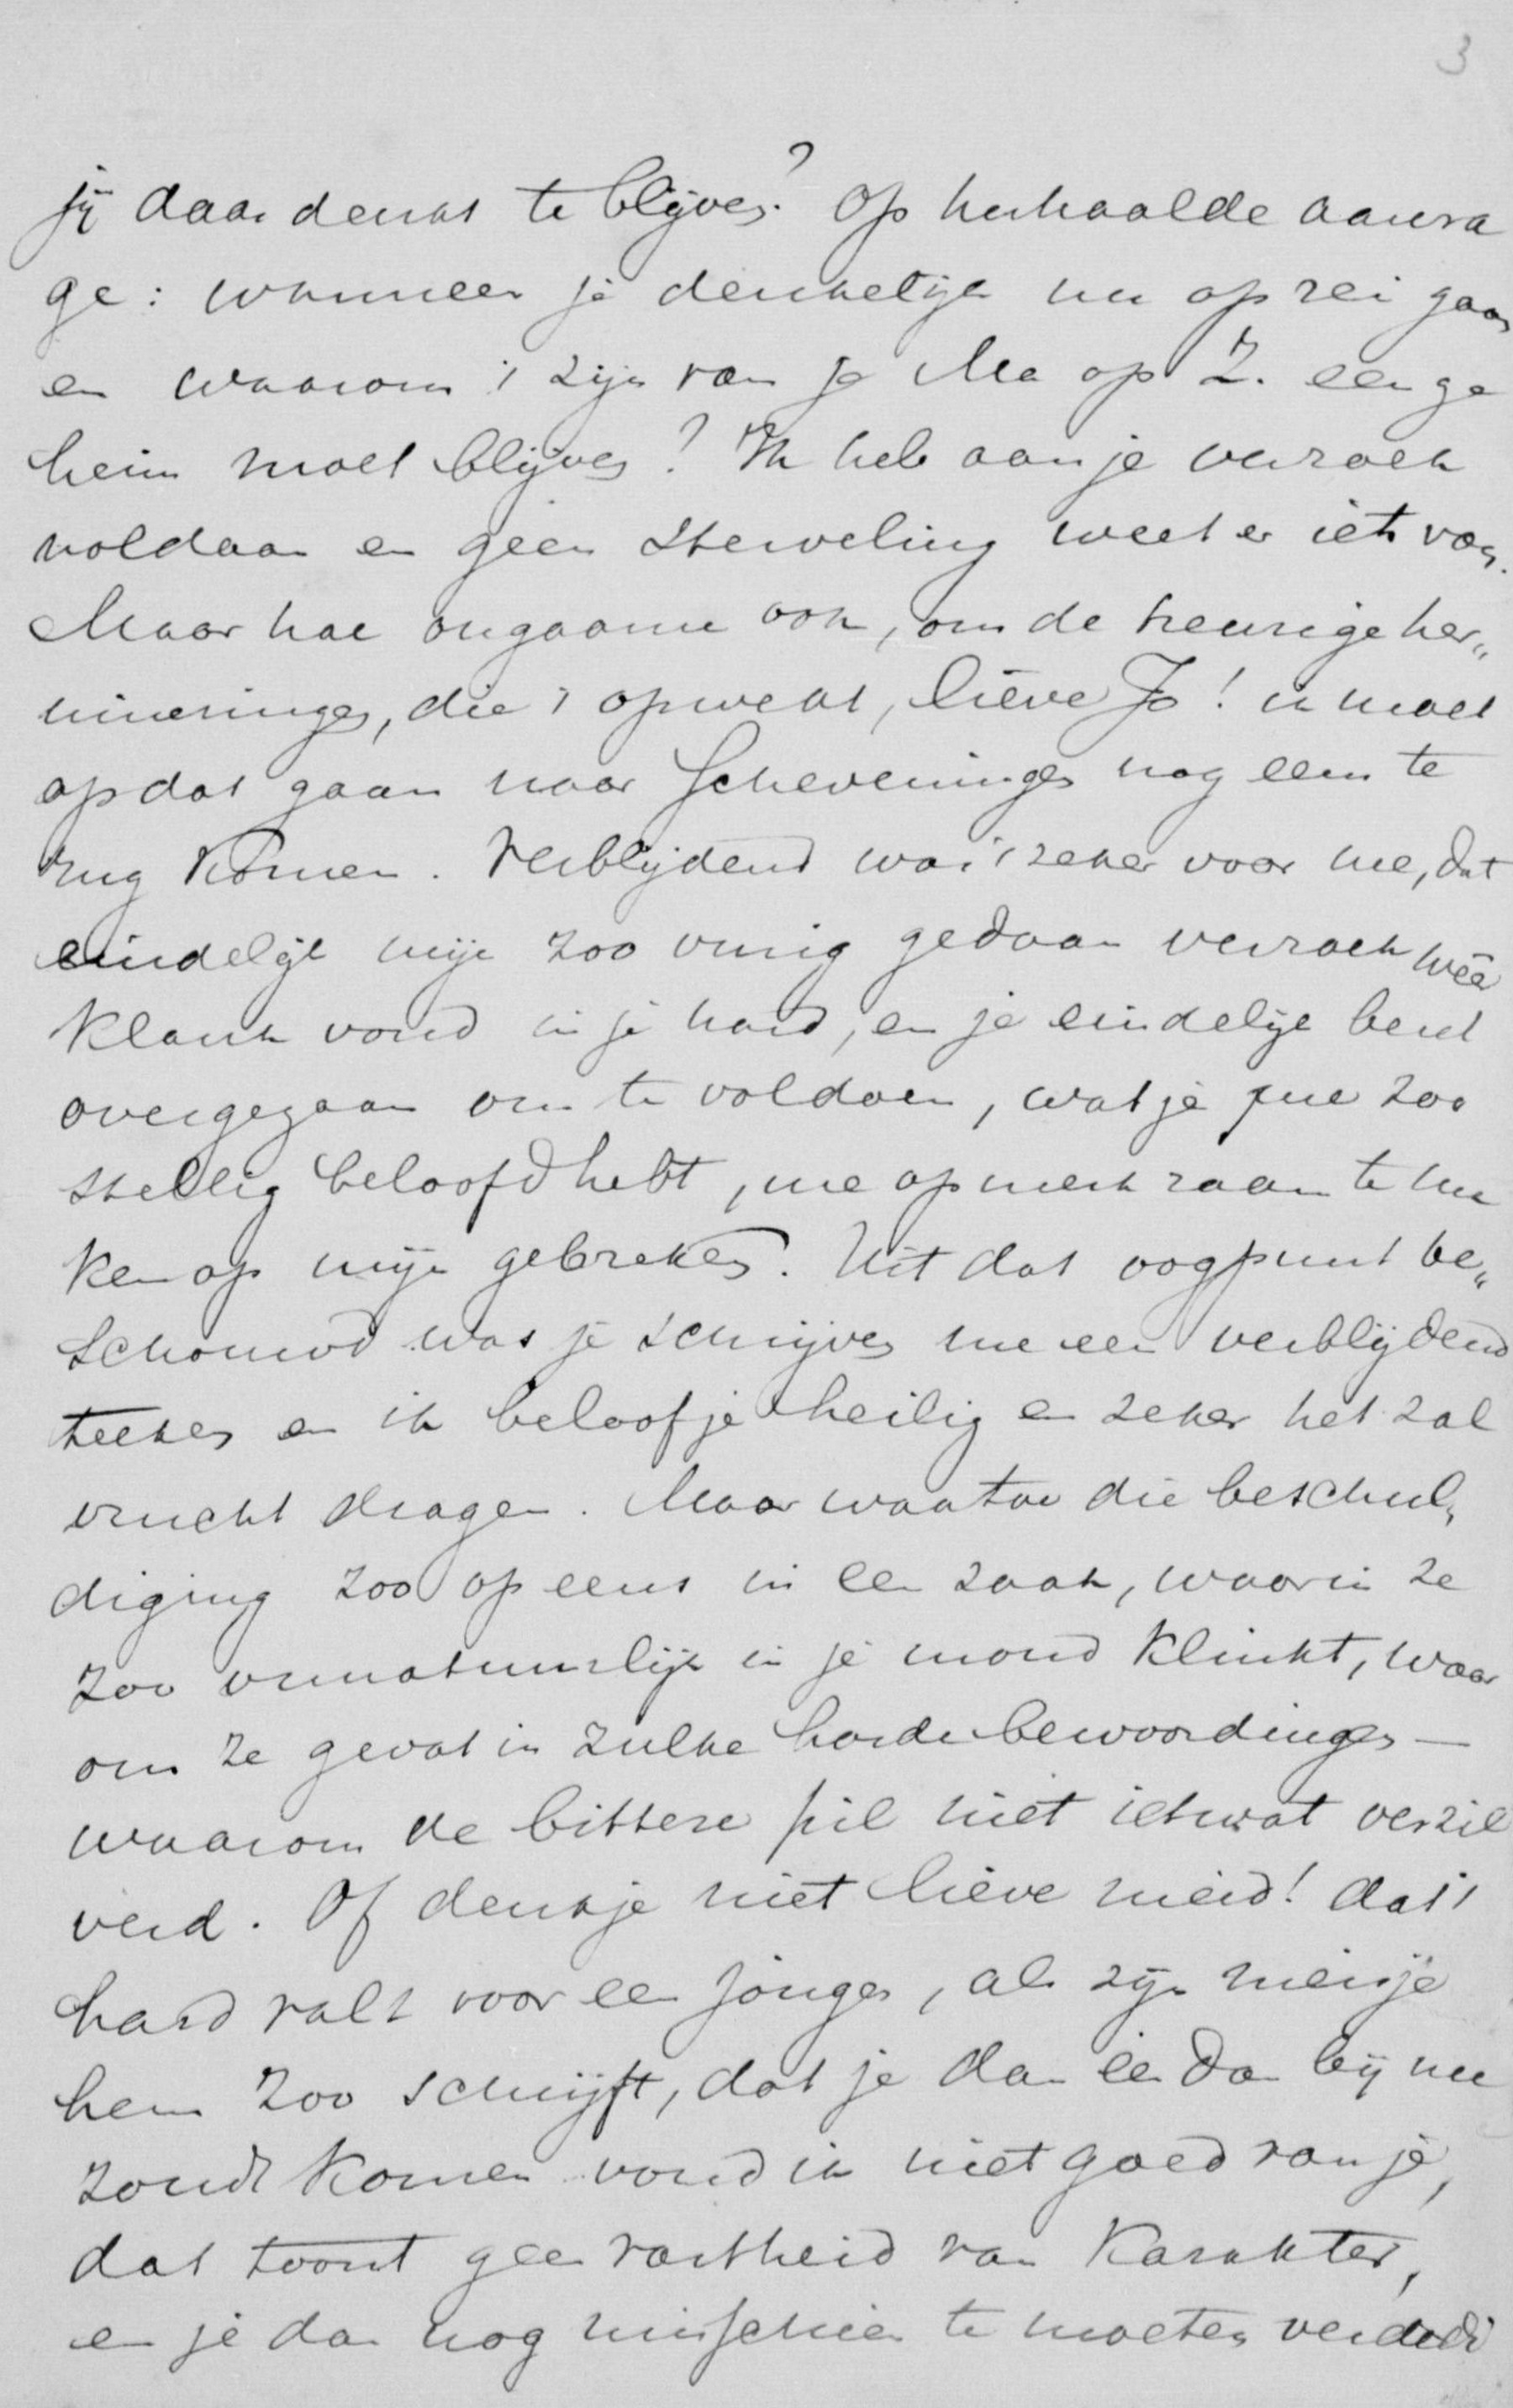 3
jij daar denkt te blijven? Op herhaalde aanvra
ge: wanneer je denkelijk nu op reis gaan
en waarom 't zijn van je Ma op Z. een ge
heim moet blijven? Ik heb aan je verzoek
voldaan en geen sterveling weet er iets van.
Maar hoe ongaarne ook, om de treurige her„
inneringen, die 't opwekt, lieve Jo! ik moet
op dat gaan naar Scheveningen nog eens te
rug komen. Verblijdend was 't zeker voor me, dat
eindelijk mijn zoo vurig gedaan verzoek wêer
klank vond in je hard, en je eindelijk bent
overgegaan om te voldoen, wat je me zoo
stellig beloofd hebt, me opmerkzaam te ma
ken op mijn gebreken. Uit dat oogpunt be„
schouwd was je schrijven me een verblijdend
teeken en ik beloof je heilig en zeker het zal
vrucht dragen. Maar waartoe die beschul„
diging zoo opeens in een zaak, waarin ze
zoo onnatuurlijk in je mond klinkt, waar
om ze gevat in zulke harde bewoordingen —
waarom de bittere pil niet ietwat verzil
verd. Of denk je niet lieve meid! dat 't
hard valt voor een jongen, als zijn meisje
hem zoo schrijft, dat je dan een dan bij me
zoudt komen vond ik niet goed van je,
dat toont geen vastheid van karakter,
en je dan nog misschien te moeten verdedi